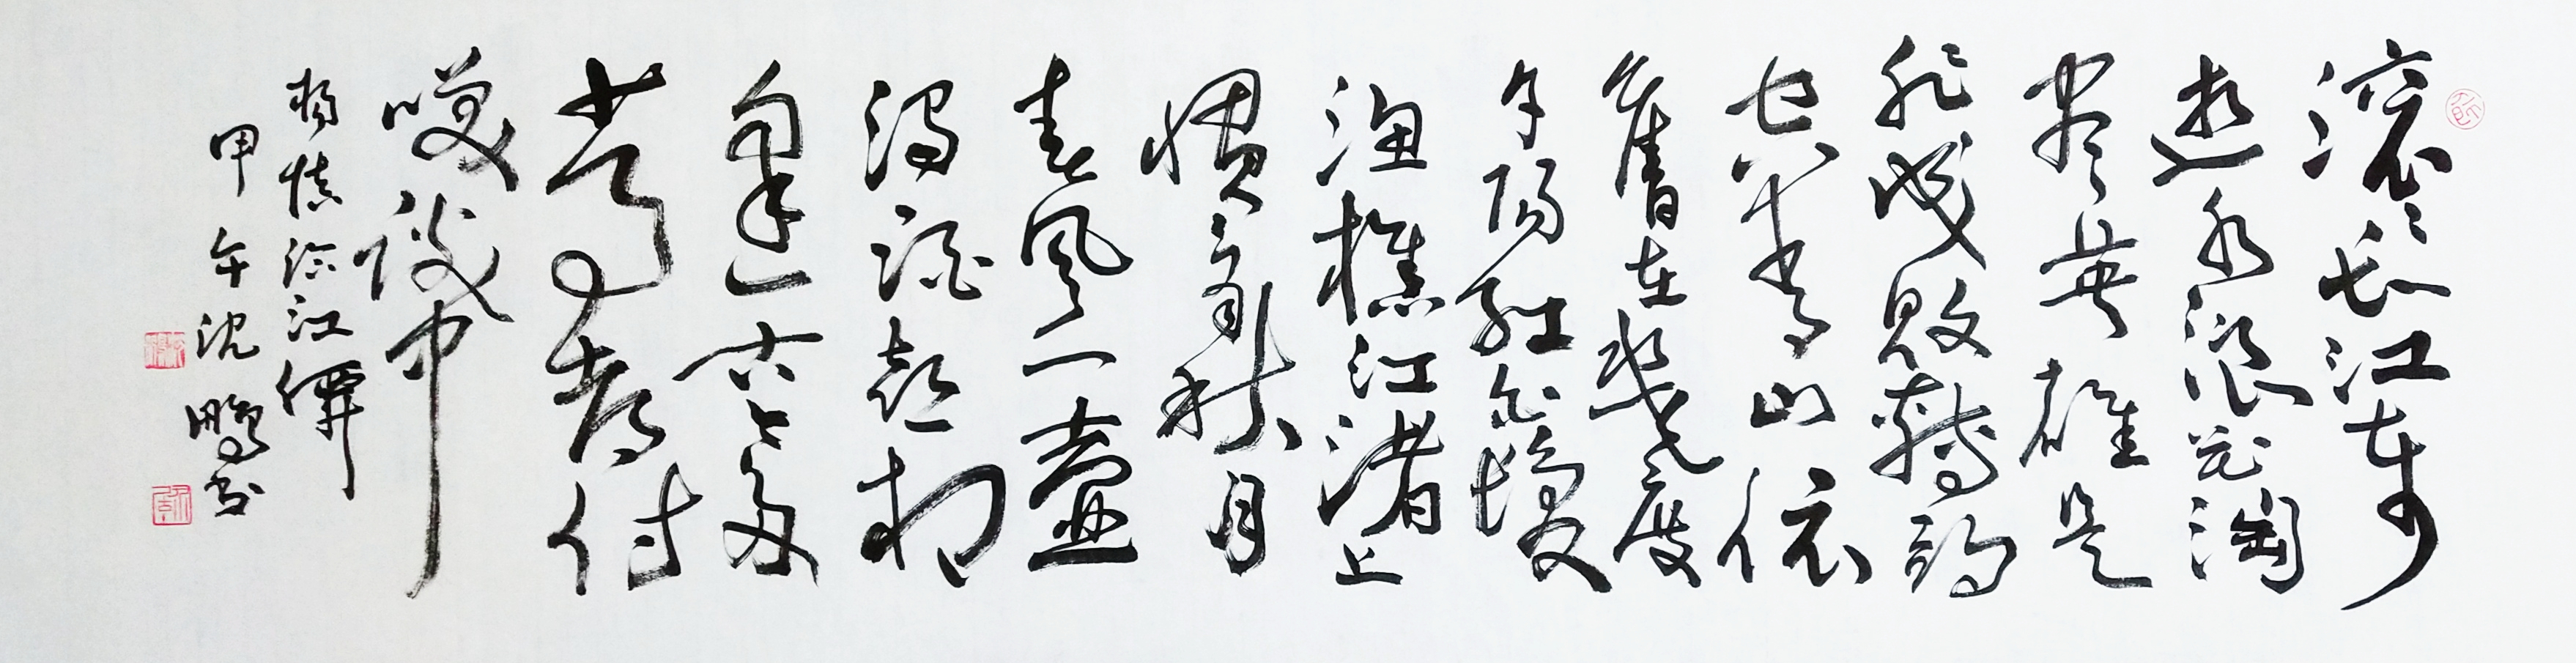 滚滚长江东
逝水浪花淘
尽英雄是
非成败转头
空青山依
舊在幾度
夕阳红白发
渔樵江渚上
惯看秋月
春风一壶
浊酒喜相
逢古今多
少事都付
笑谈中
杨慎临江僊
甲午沈鹏书